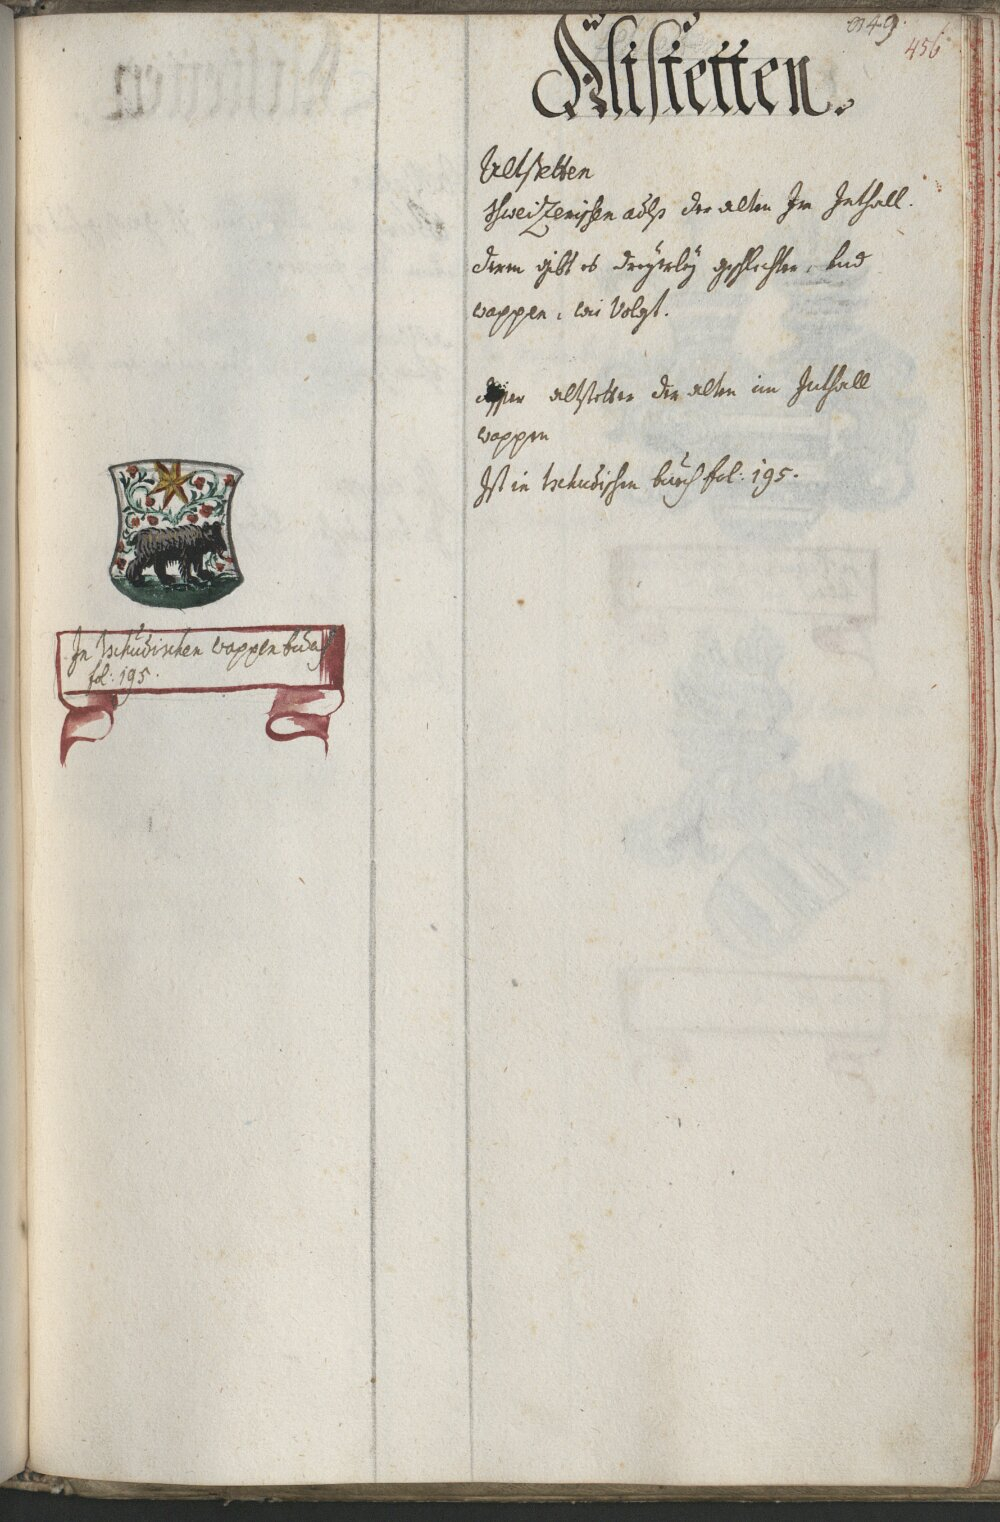 949.
456
Altstetten.
Altstetten
schweizerischen adls der alten Im Inthall.
deren gibt es dreyerley geschlechter, vnd
wappen, wie Volgt.
altstetter der alten im Inthall
wappen
Ist in tschudischen buch fol: 195.
In tschudischen wappenbuch
fol: 195.